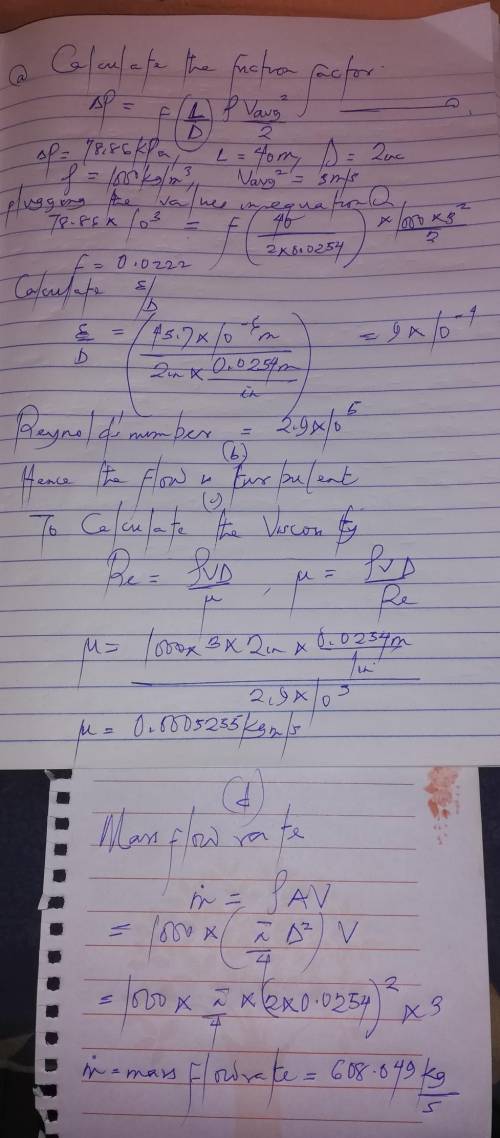 (a) Calculate the friction factor.
ΔP = f (L/D) ρ Vavg²/2
ΔP = 78.86 kPa, L = 40m, D = 2in
ρ = 1000 kg/m³, Vavg² = 3m/s
plugging the values in equation ①
78.86 × 10³ = f (40/(2×0.0254)) × (1000 × 3²)/2
f = 0.0222
Calculate ε/D
ε/D = (45.7 × 10⁻⁶ m / (2in × 0.0254m/in)) = 9 × 10⁻⁴
Reynold's number = 2.9 × 10⁵
(b)
Hence the flow is turbulent
(c)
To Calculate the Viscosity
Re = ρVD/μ , μ = ρVD/Re
μ = (1000 × 3 × 2in × 0.0254m/1in) / (2.9 × 10⁵)
μ = 0.0005255 kgm/s
(d)
Mass flow rate
ṁ = ρAV
= 1000 × (π/4 D²) V
= 1000 × π/4 × (2×0.0254)² × 3
ṁ = mass flow rate = 608.049 kg/s